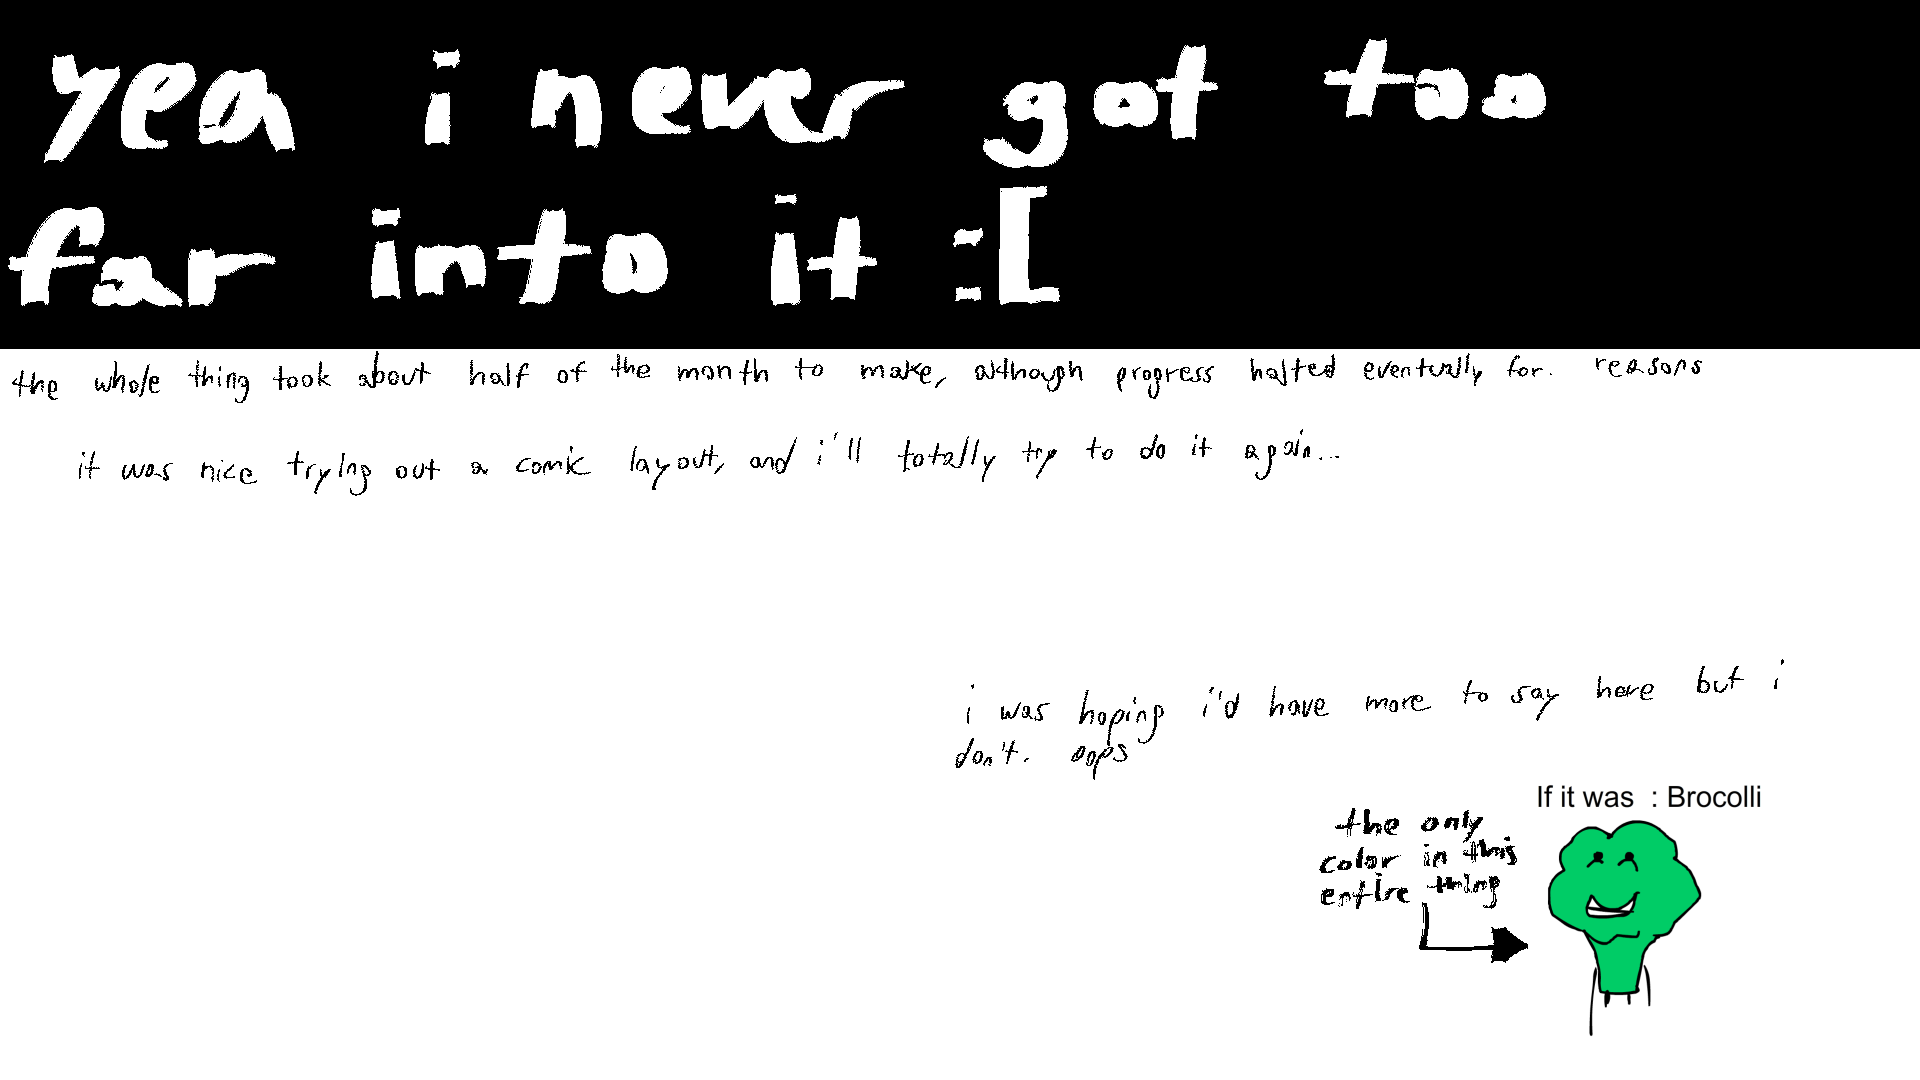 yea i never got too
far into it :[
the whole thing took about half of the month to make, although progress halted eventually for. reasons
it was nice trying out a comic layout, and i'll totally try to do it again...
i was hoping i'd have more to say here but i
don't. oops
If it was : Brocolli
the only
color in this
entire thing